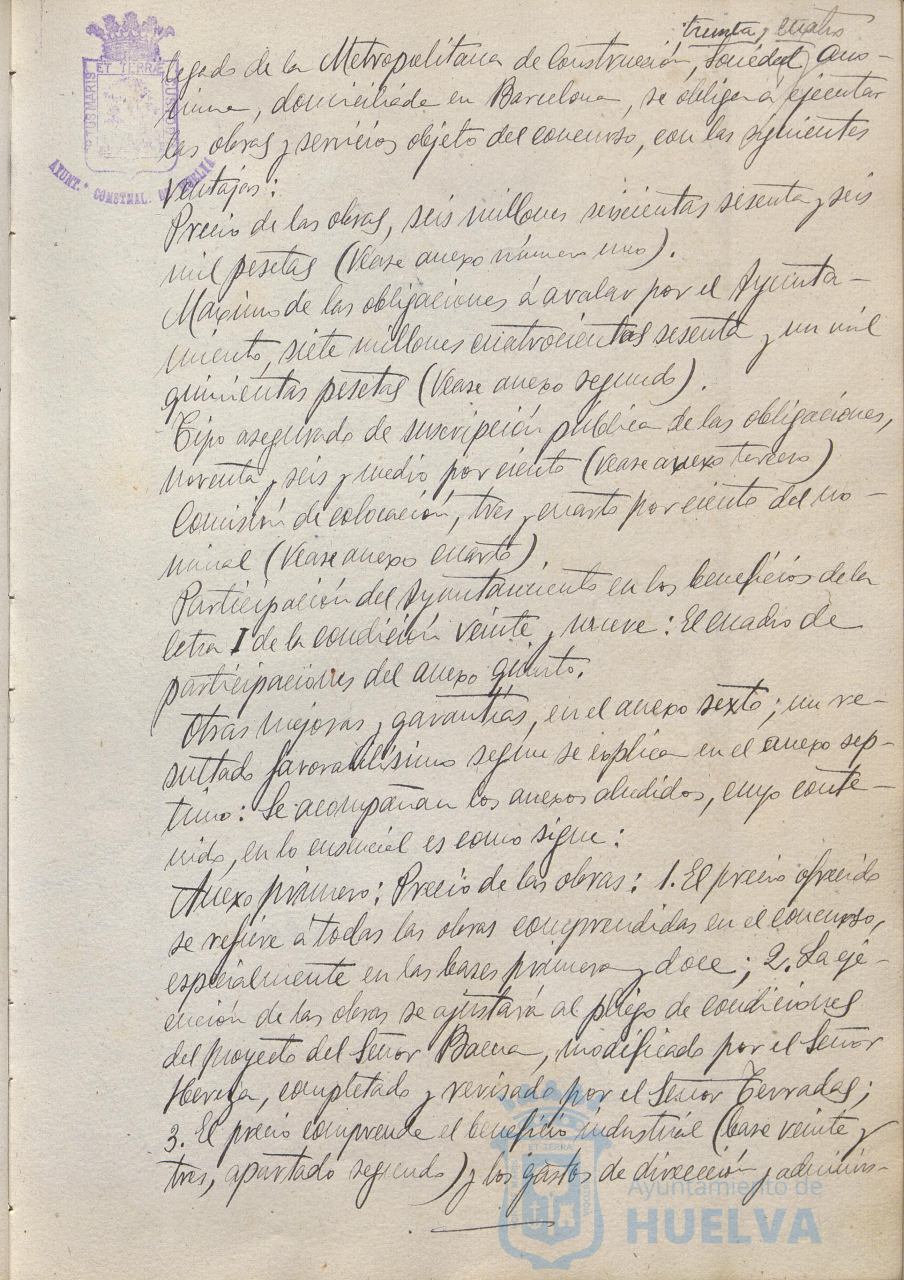 treinta y cuatro
legado de la Metropolitana de Construcción, Sociedad Anó-
nima, domiciliada en Barcelona, se obliga a ejecutar
las obras y servicios objeto del concurso, con las siguientes
ventajas:
Precio de las obras, seis millones seiscientas sesenta y seis
mil pesetas (Vease anexo número uno).
Maximo de las obligaciones á avalar por el Ayunta-
miento, siete millones cuatrocientas sesenta y un mil
quinientas pesetas (Vease anexo segundo).
Tipo asegurado de suscripción pública de las obligaciones,
noventa y seis y medio por ciento (Vease anexo tercero)
Comisión de colocación, tres y cuarto por ciento del no-
minal (Vease anexo cuarto)
Participación del Ayuntamiento en los beneficios de la
letra I de la condición veinte y nueve: El cuadro de
participaciones del anexo quinto.
Otras mejoras y garantías, en el anexo sexto; un re-
sultado favorabilísimo segun se explica en el anexo sep-
timo: Se acompañan los anexos aludidos, cuyo conte-
nido, en lo esencial es como sigue:
Anexo primero: Precio de las obras: 1. El precio ofrecido
se refiere á todas las obras comprendidas en el concurso,
especialmente en las bases primera y doce; 2. La eje-
cución de las obras se ajustará al pliego de condiciones
del proyecto del Señor Baena, modificado por el Señor
Hereza, completado y revisado por el Señor Terradas;
3. El precio comprende el beneficio industrial (base veinte y
tres, apartado segundo) y los gastos de dirección y adminis-
ET TERRA
PORTUS MARIS
CUSTODIA
AYUNT.º CONSTNAL. DE HUELVA
Ayuntamiento de
HUELVA